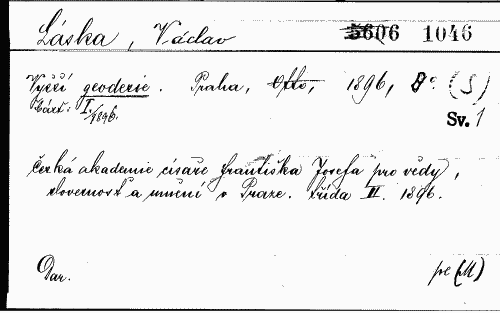 Láska, Václav 5606 1046
Vyšší geodesie. Praha, Otto, 1896, 8° (S)
část: I./1896. Sv. 1
česká akademie císaře Františka Josefa pro vědy,
slovesnost a umění v Praze. třída II. 1896.
Dar. pe (M)